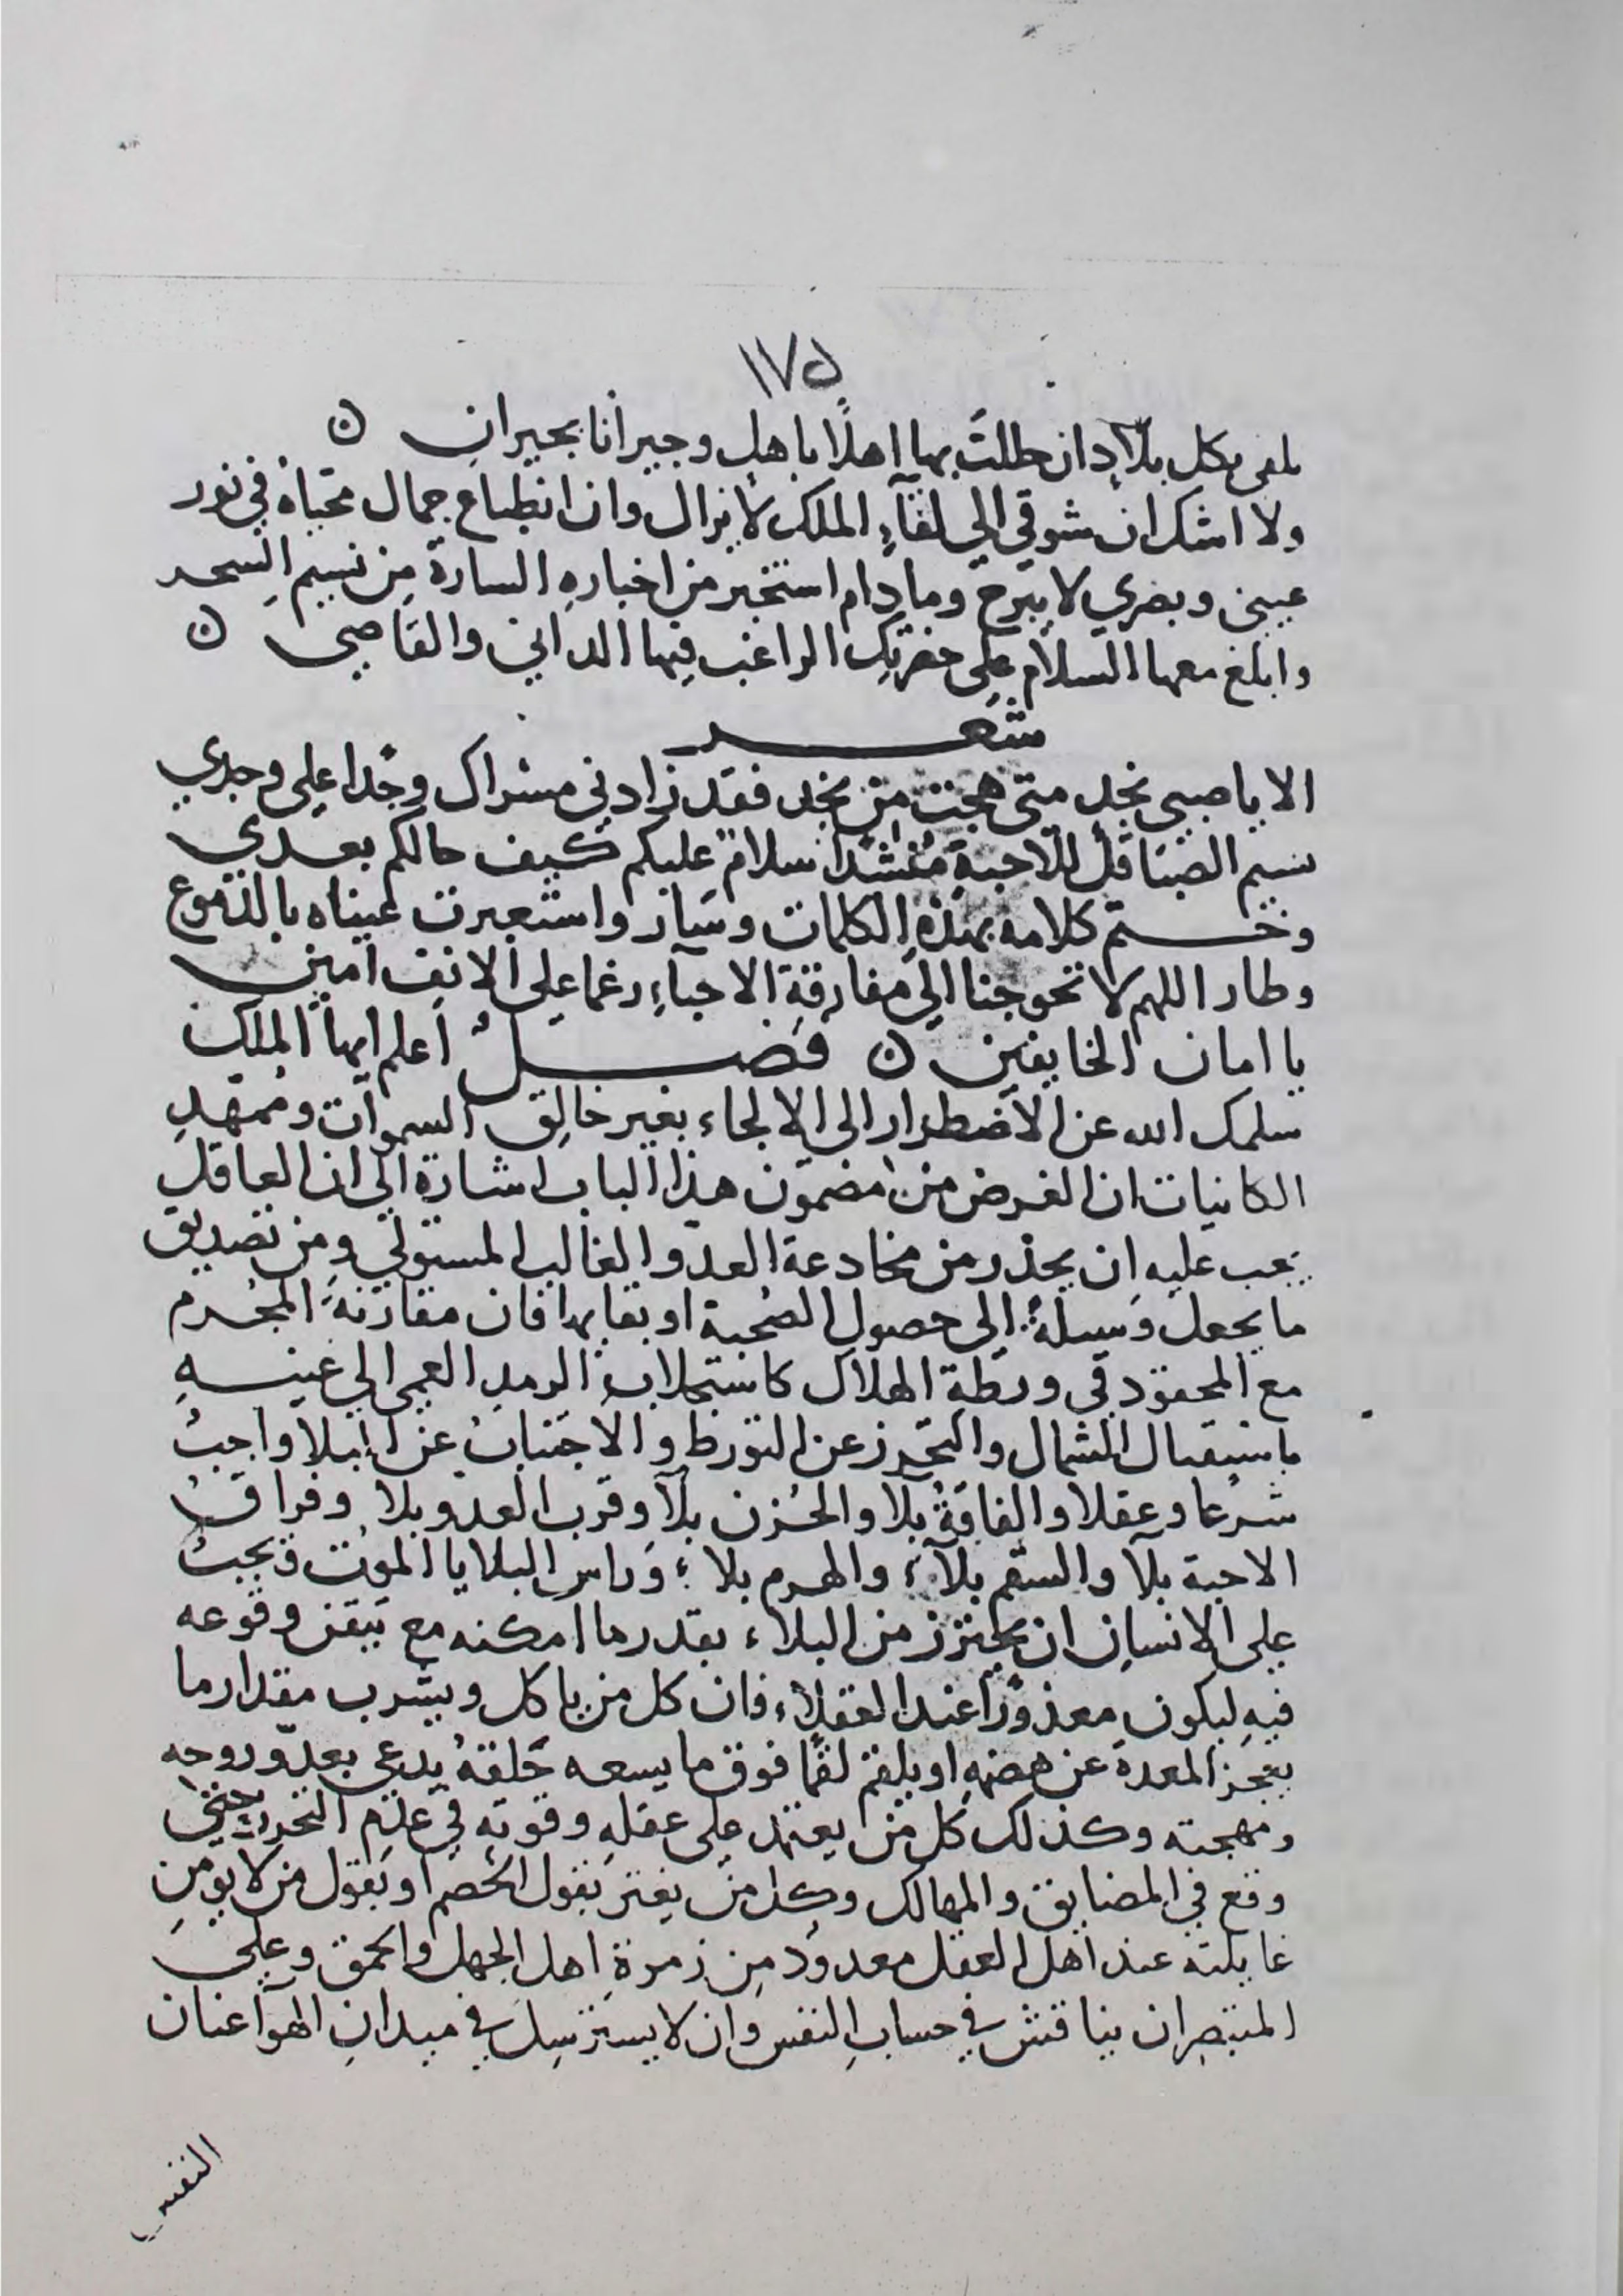 ١٧٥
تلقى بكل بلاد ان حللت بها اهلًا باهل وجيرانا بجيران ن
ولا اشك ان شوقي الي لقآءِ الملك لا يزال وان انطباع جمال محياه في نور
عيني وبصري لا يبرح وما دام استخبر من اخبارهِ السارة من نسيم السحر
وابلغ معها السلام على حضرتك الراغب فيها الداني والقاصي ن
شعر
الا يا صبى نجد متى هجت من نجد فقد زادني مسراك وجدا على وجدي
نسيم الصبا قل للاحبةِ منشدا سلام عليكم كيف حالكم بعدي
وختم كلامه بهذه الكلمات وسار واستعبرت عيناه بالدموع
وطار اللهم لا تحوجنا الي مفارقة الاحباءِ رغما على الانف امين
يا امان الخايفين ن فصل اعلم ايها الملك
سلمك الله عن الاضطرار الى الالجاء بغير خالق السموات وممهد
الكانيات ان الغرض من مضمون هذا الباب اشارة الى ان العاقل
يجب عليه ان يحذر من مخادعة العدو الغالب المستولي ومن تصديق
ما يجعل وسيلة الى حصول الصحبة او بقايها فان مقارنة المجرم
مع المحقود في ورطة الهلاك كاستجلاب الرمد العمى الي عينهِ
باستقبال الشمال والتحرز عن التورط والاجتناب عن البلا واجبُ
شرعا وعقلا والفاقةُ بلا والحزن بلآ وقرب العدو بلا وفراق
الاحبة بلآ والسقم بلآء والهرم بلاء وراس البلايا الموت فيجبُ
على الانسان ان يحترز من البلاء بقدر ما امكنه مع تيقن وقوعه
فيهِ ليكون معذورًا عند العقلاء فان كل من ياكل ويشرب مقدار ما
يعجز المعدة عن هضمهِ او يلقم لقما فوق ما يسعه حلقهُ يدعى بعدو روحه
ومهجته وكذلك كل من يعتمد على عقلهِ وقوتهِ في عدم التحرز حتى
وقع في المضايق والمهالك وكذا من يغتر بقول الخصم او بقول من لا يومن
غايلته عند اهل العقل معدود من زمرةِ اهل الجهل والحمق وعلى
المتبصر ان يناقش في حسابِ النفس وان لا يسترسل في ميدانِ الهوآ عنان
النفس